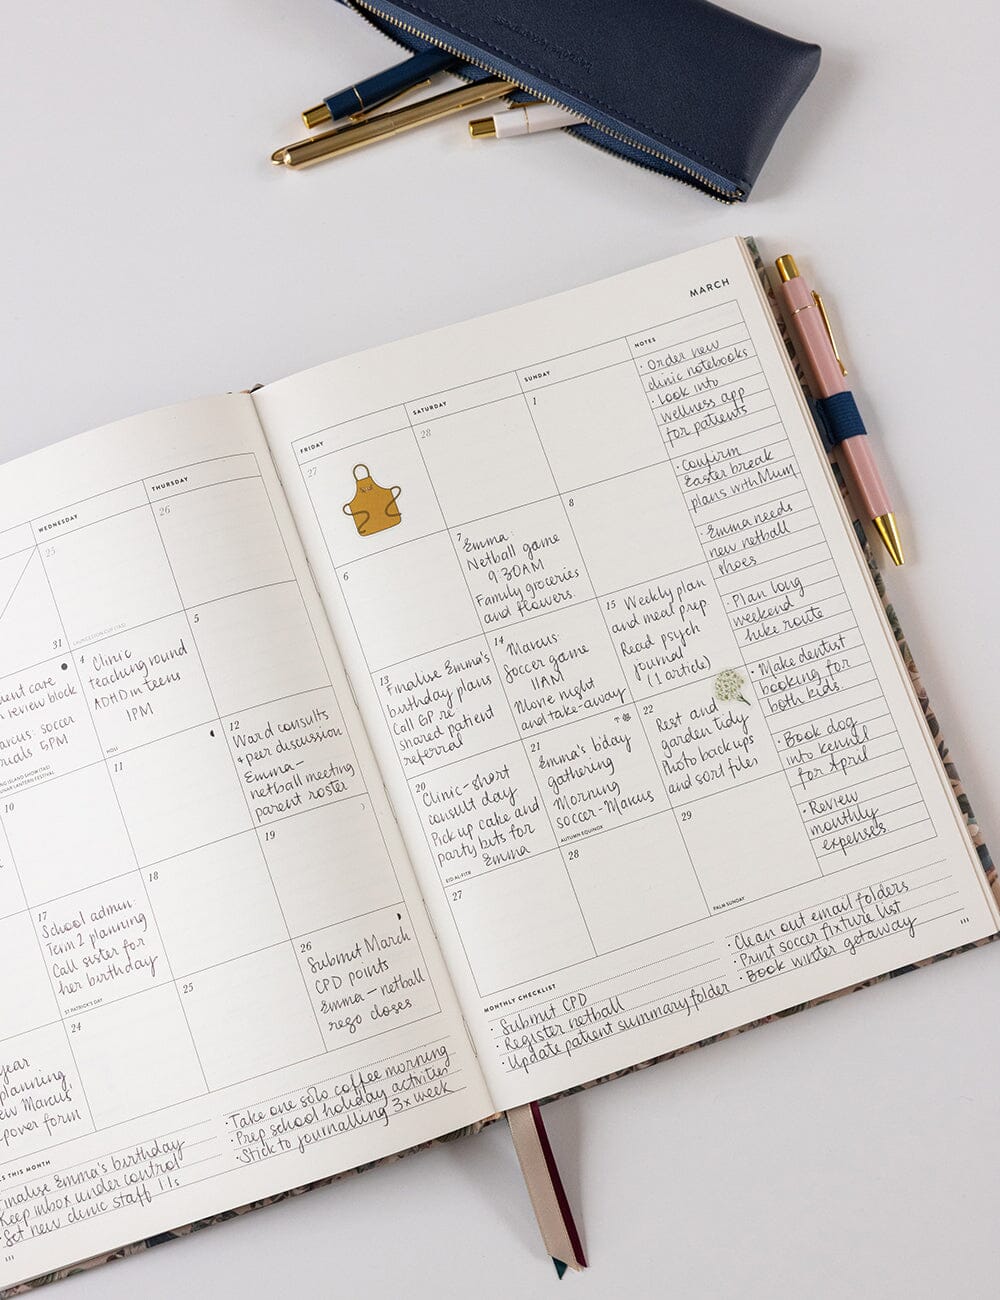 MARCH
WEDNESDAY
THURSDAY
25
26
31
LAUNCESTON CUP (TAS)
care
review block
soccer
5PM
4 Clinic
teaching round
ADHD in teens
1PM
5
HOLI
10
11
12
Ward consults
+ peer discussion
Emma -
netball meeting
parent roster
17
School admin:
Term 2 planning
Call sister for
her birthday
ST PATRICK'S DAY
18
19
year
planning,
Marcus'
form
24
25
26
Submit March
CPD points
Emma - netball
rego closes
THIS MONTH
Finalise Emma's birthday
Keep inbox under control
Set new clinic staff
· Take one solo coffee morning
· Prep school holiday activities
· Stick to journalling 3x week
FRIDAY
SATURDAY
SUNDAY
NOTES
27
28
1
6
7 Emma:
Netball game
9:30AM
Family groceries
and flowers.
8
13
Finalise Emma's
birthday plans
Call GP re
shared patient
referral
14
Marcus:
Soccer game
11AM
Movie night
and take-away
15 Weekly plan
and meal prep
Read psych
journal
(1 article)
20
Clinic - short
consult day
Pick up cake and
party bits for
Emma
EID AL-FITR
21
Emma's b'day
gathering
Morning
soccer - Marcus
AUTUMN EQUINOX
22
Rest and
garden tidy
Photo backups
and sort files
27
28
29
PALM SUNDAY
· Order new
clinic notebooks
· Look into
wellness app
for patients
· Confirm
Easter break
plans with Mum
· Emma needs
new netball
shoes
· Plan long
weekend
hike route
· Make dentist
booking for
both kids.
· Book dog
into kennel
for April
· Review
monthly
expenses
MONTHLY CHECKLIST
· Submit CPD
· Register netball
· Update patient summary folder
· Clean out email folders
· Print soccer fixture list
· Book winter getaway